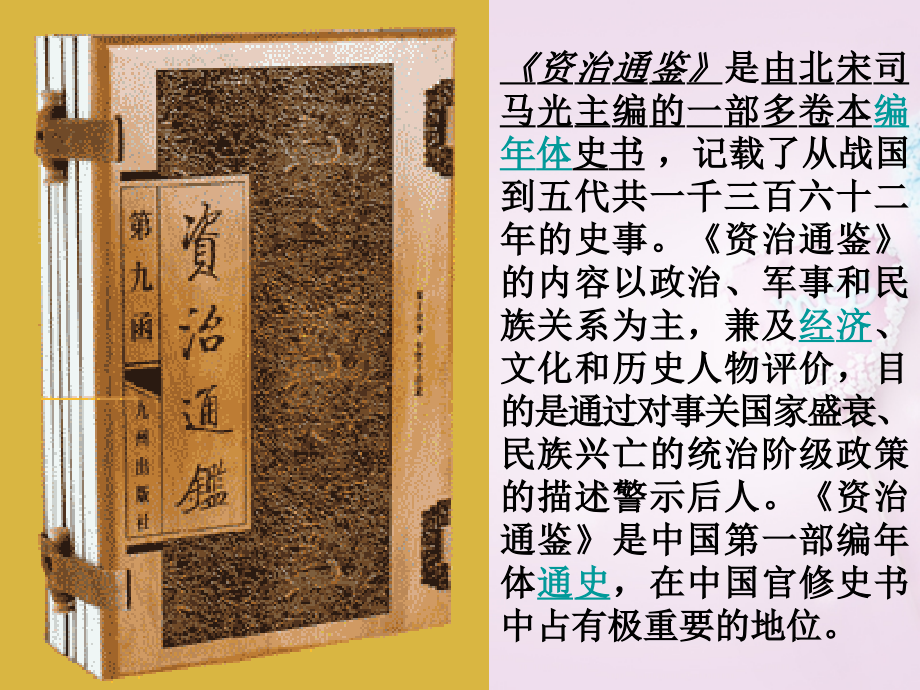 《资治通鉴》是由北宋司
马光主编的一部多卷本编
年体史书 ，记载了从战国
到五代共一千三百六十二
年的史事。《资治通鉴》
的内容以政治、军事和民
族关系为主，兼及经济、
文化和历史人物评价，目
的是通过对事关国家盛衰、
民族兴亡的统治阶级政策
的描述警示后人。《资治
通鉴》是中国第一部编年
体通史，在中国官修史书
中占有极重要的地位。
資治通鑑
第九函
九州出版社